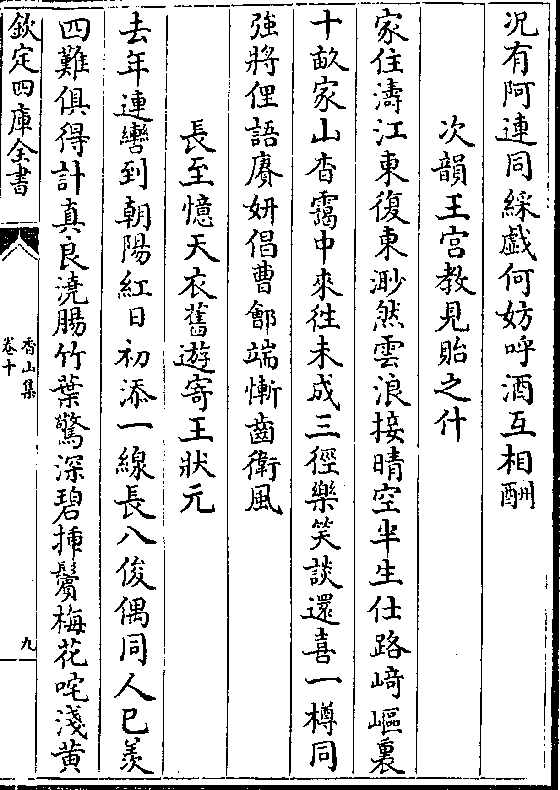 况有阿連同綵戱何妨呼酒互相酬
次韻王宫教見貽之什
家住濤江東復東渺然雲浪接晴空半生仕路﨑嶇裏
十畝家山杳靄中來徃未成三徑樂笑談還喜一樽同
強將俚語賡妍倡曹鄶端慚齒衛風
長至憶天衣舊遊寄王狀元
去年連轡到朝陽紅日初添一線長八俊偶同人已羨
四難俱得計真良澆腸竹葉驚深碧揷鬢梅花咤淺黄
欽定四庫全書
香山集
卷十
九